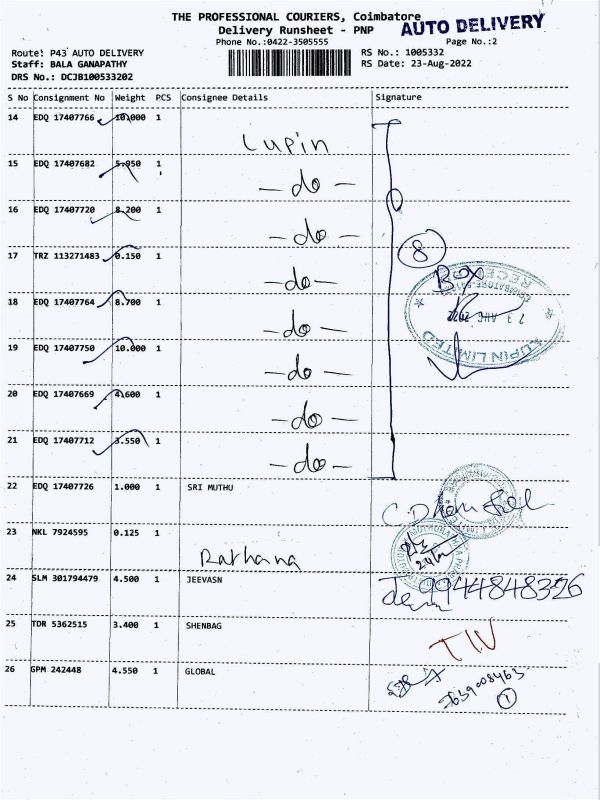 THE PROFESSIONAL COURIERS, Coimbatore
AUTO DELIVERY
Delivery Runsheet - PNP
Phone No.:0422-3505555
Page No.:2
Route: P43 AUTO DELIVERY
RS No.: 1005332
Staff: BALA GANAPATHY
RS Date: 23-Aug-2022
DRS No.: DCJB100533202
S No Consignment No Weight PCS Consignee Details Signature
14 EDQ 17407766 10.000 1 Lupin
15 EDQ 17407682 5.950 1 - do -
16 EDQ 17407720 8.200 1 - do -
17 TRZ 113271483 0.150 1 - do -
8
Box
18 EDQ 17407764 8.700 1 - do -
23 AUG 2022
LUPIN LIMITED
19 EDQ 17407750 10.000 1 - do -
20 EDQ 17407669 4.600 1 - do -
21 EDQ 17407712 3.550 1 - do -
22 EDQ 17407726 1.000 1 SRI MUTHU
23 NKL 7924595 0.125 1 Rathana
24 SLM 301794479 4.500 1 JEEVASN 9944848326
25 TDR 5362515 3.400 1 SHENBAG
26 GPM 242448 4.550 1 GLOBAL 7639008463
1